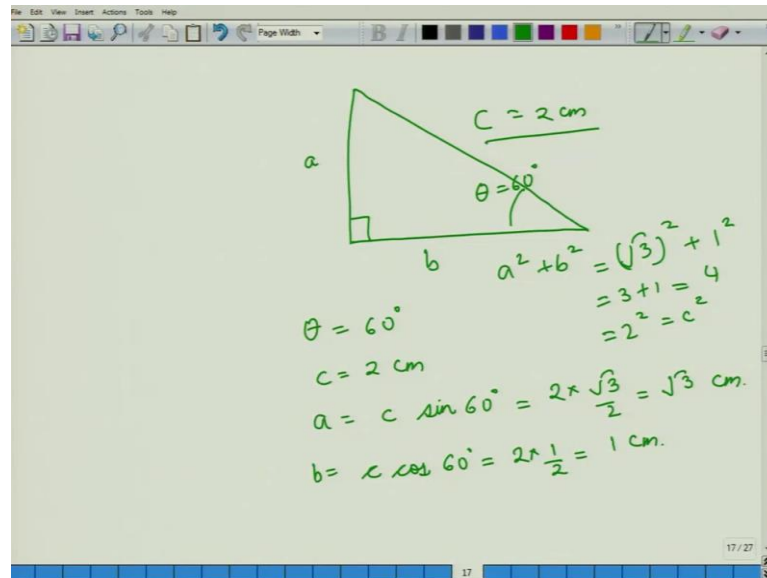 File Edit View Insert Actions Tools Help
Page Width
B I
C = 2 cm
a
θ = 60°
b
a² + b² = (√3)² + 1²
= 3 + 1 = 4
= 2² = c²
θ = 60°
c = 2 cm
a = c sin 60° = 2 × √3/2 = √3 cm.
b = c cos 60° = 2 × 1/2 = 1 cm.
17 / 27
17